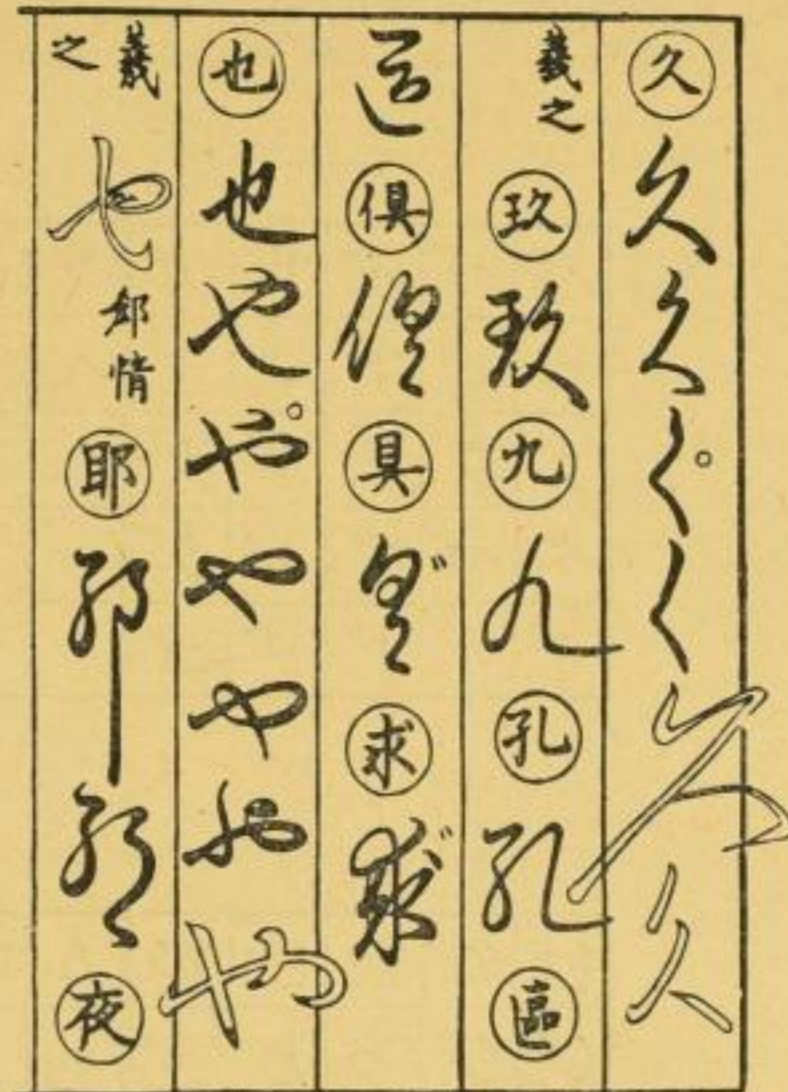 久 久 久 く く 久 久
羲之 玖 玖 九 九 孔 孔 區
區 倶 倶 具 具 求 求
也 也 也 や や や や や
羲之 也 耶 耶 耶 夜